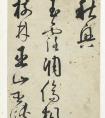 秋興
玉露凋傷楓
樹林巫山巫